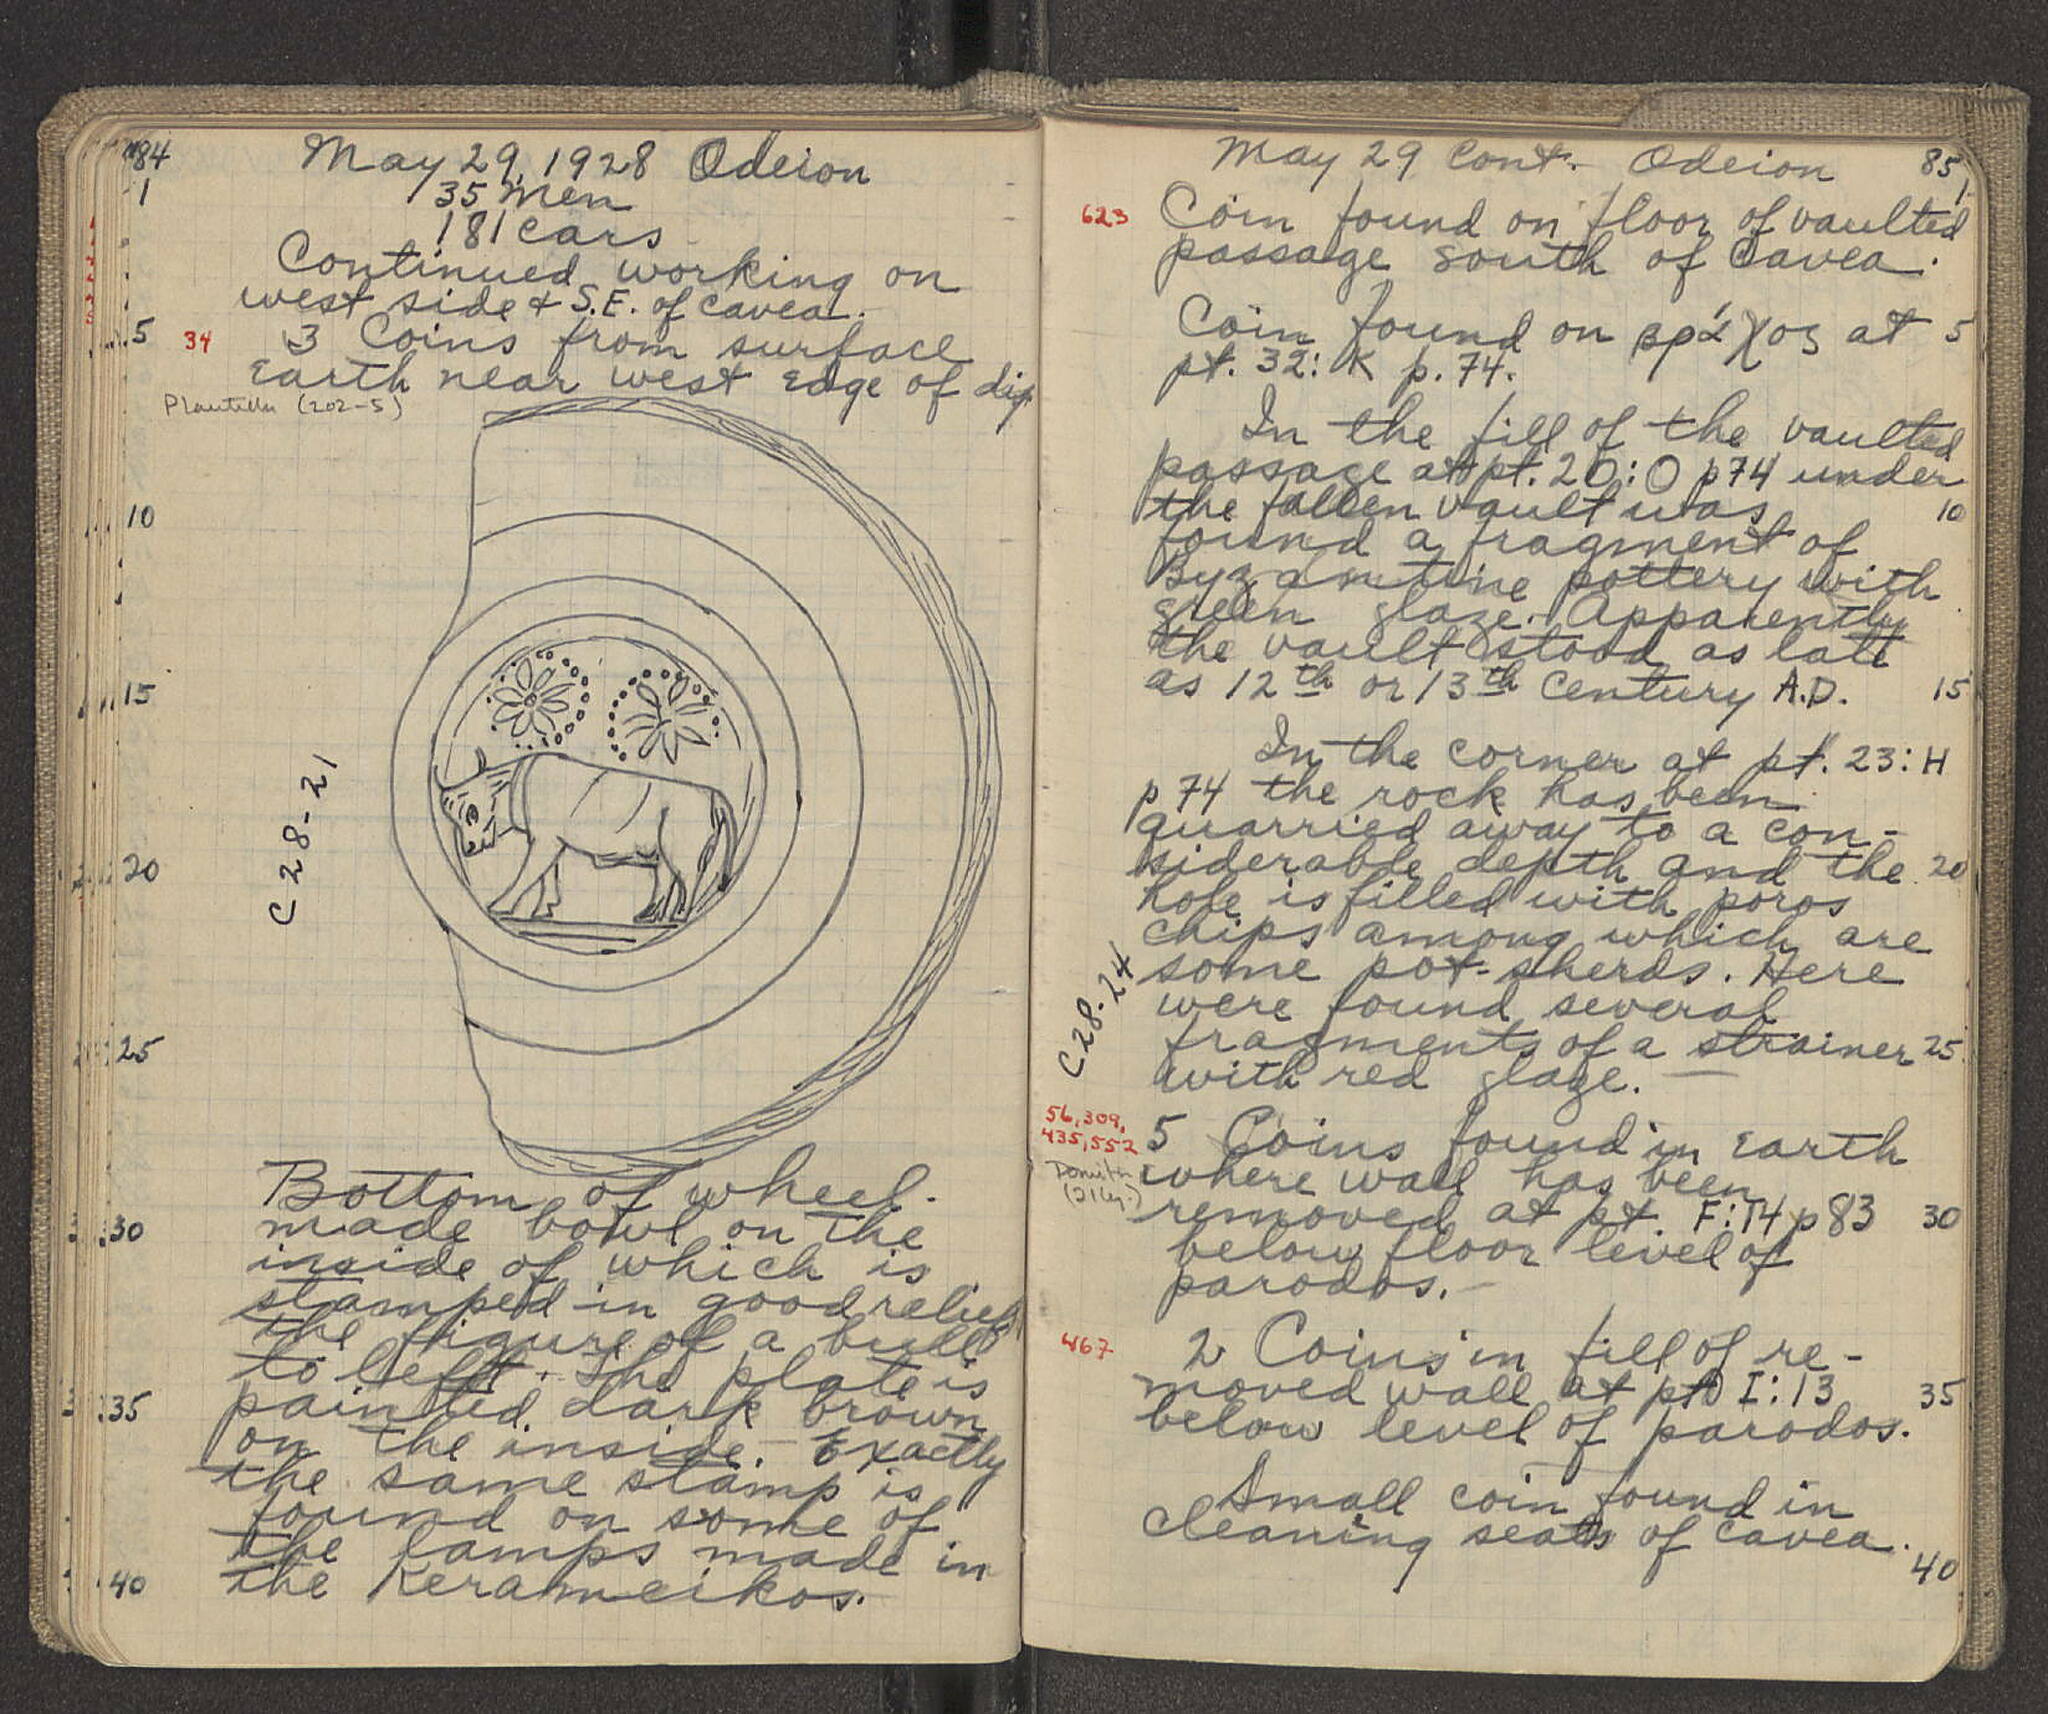 84
May 29, 1928 Odeion
1
35 men
181 cars
Continued working on
west side & S.E. of cavea.
5
34
3 Coins from surface
Earth near west edge of dig
Plautilla (202-5)
10
15
C 28-21
20
25
Bottom of wheel.
30
made bowl on the
inside of which is
stamped in good relief
the figure of a bull
to left. The plate is
35
painted dark brown
on the inside. Exactly
the same stamp is
found on some of
the lamps made in
40
the Kerameikos.
May 29 Cont. - Odeion
85
1
623
Coin found on floor of vaulted
passage south of Cavea.
Coin found on βράχος at
5
pt. 32: K p. 74.
In the fill of the vaulted
passage at pt. 20:O p74 under
the fallen vault was
10
found a fragment of
Byzantine pottery with
green glaze. Apparently
the vault stood as late
as 12th or 13th Century A.D.
15
In the corner at pt. 23: H
p 74 the rock has been
quarried away to a con-
siderable depth and the
20
hole is filled with poros
chips among which are
some pot-sherds. Here
were found several
C 28-24
fragments of a strainer
25
with red glaze.
56, 309,
435, 552
5 Coins found in Earth
where wall has been
removed at pt. F:14 p83
30
below floor level of
parodos. -
467
2 Coins in fill of re-
moved wall at pt I:13
35
below level of parodos.
Small coin found in
cleaning seats of cavea.
40